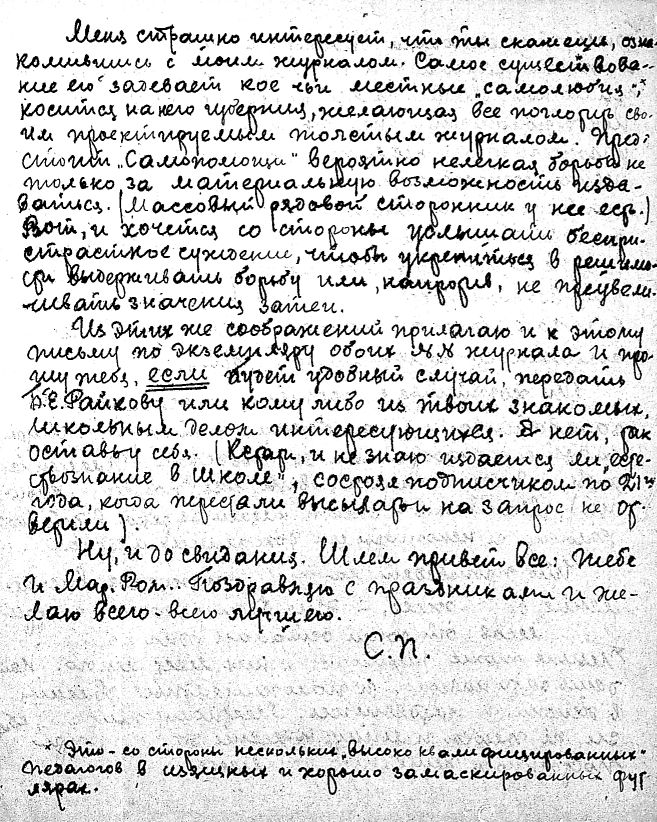 Меня страшно интересует, что ты скажешь, озна-
комившись с моим журналом. Самое существова-
ние его задевает кое чьи местные „самолюбия",*
косится на него губерния, желающая все поглотить сво-
им проектируемым толстым журналом. Пред-
стоит „Самопомощи" вероятно нелегкая борьба не
только за материальную возможность изда-
ваться. (Массовый рядовой сторонник у нее есть.)
Вот, и хочется со стороны услышать беспри-
страстное суждение, чтобы укрепиться в решимо-
сти выдерживать борьбу или, напротив, не преувели-
чивать значения затеи.
Из этих же соображений прилагаю и к этому
письму по экземпляру обоих №№ журнала и про-
шу тебя, если будет удобный случай, передать
Б.Е. Райкову или кому либо из твоих знакомых,
школьным делом интересующихся. А нет, так
оставь у себя. (Кстати, и не знаю издается ли „Есте-
ствознание в школе", состоял подписчиком по 21й
года, когда перестали высылать и на запрос не от-
ветили).
Ну, и до свидания. Шлем привет все: тебе
и Мар. Ром.. Поздравляю с праздниками и же-
лаю всего-всего лучшего.
С.П.
* Это - со стороны нескольких „высоко квалифицированных"
педагогов в изящных и хорошо замаскированных фут-
лярах.